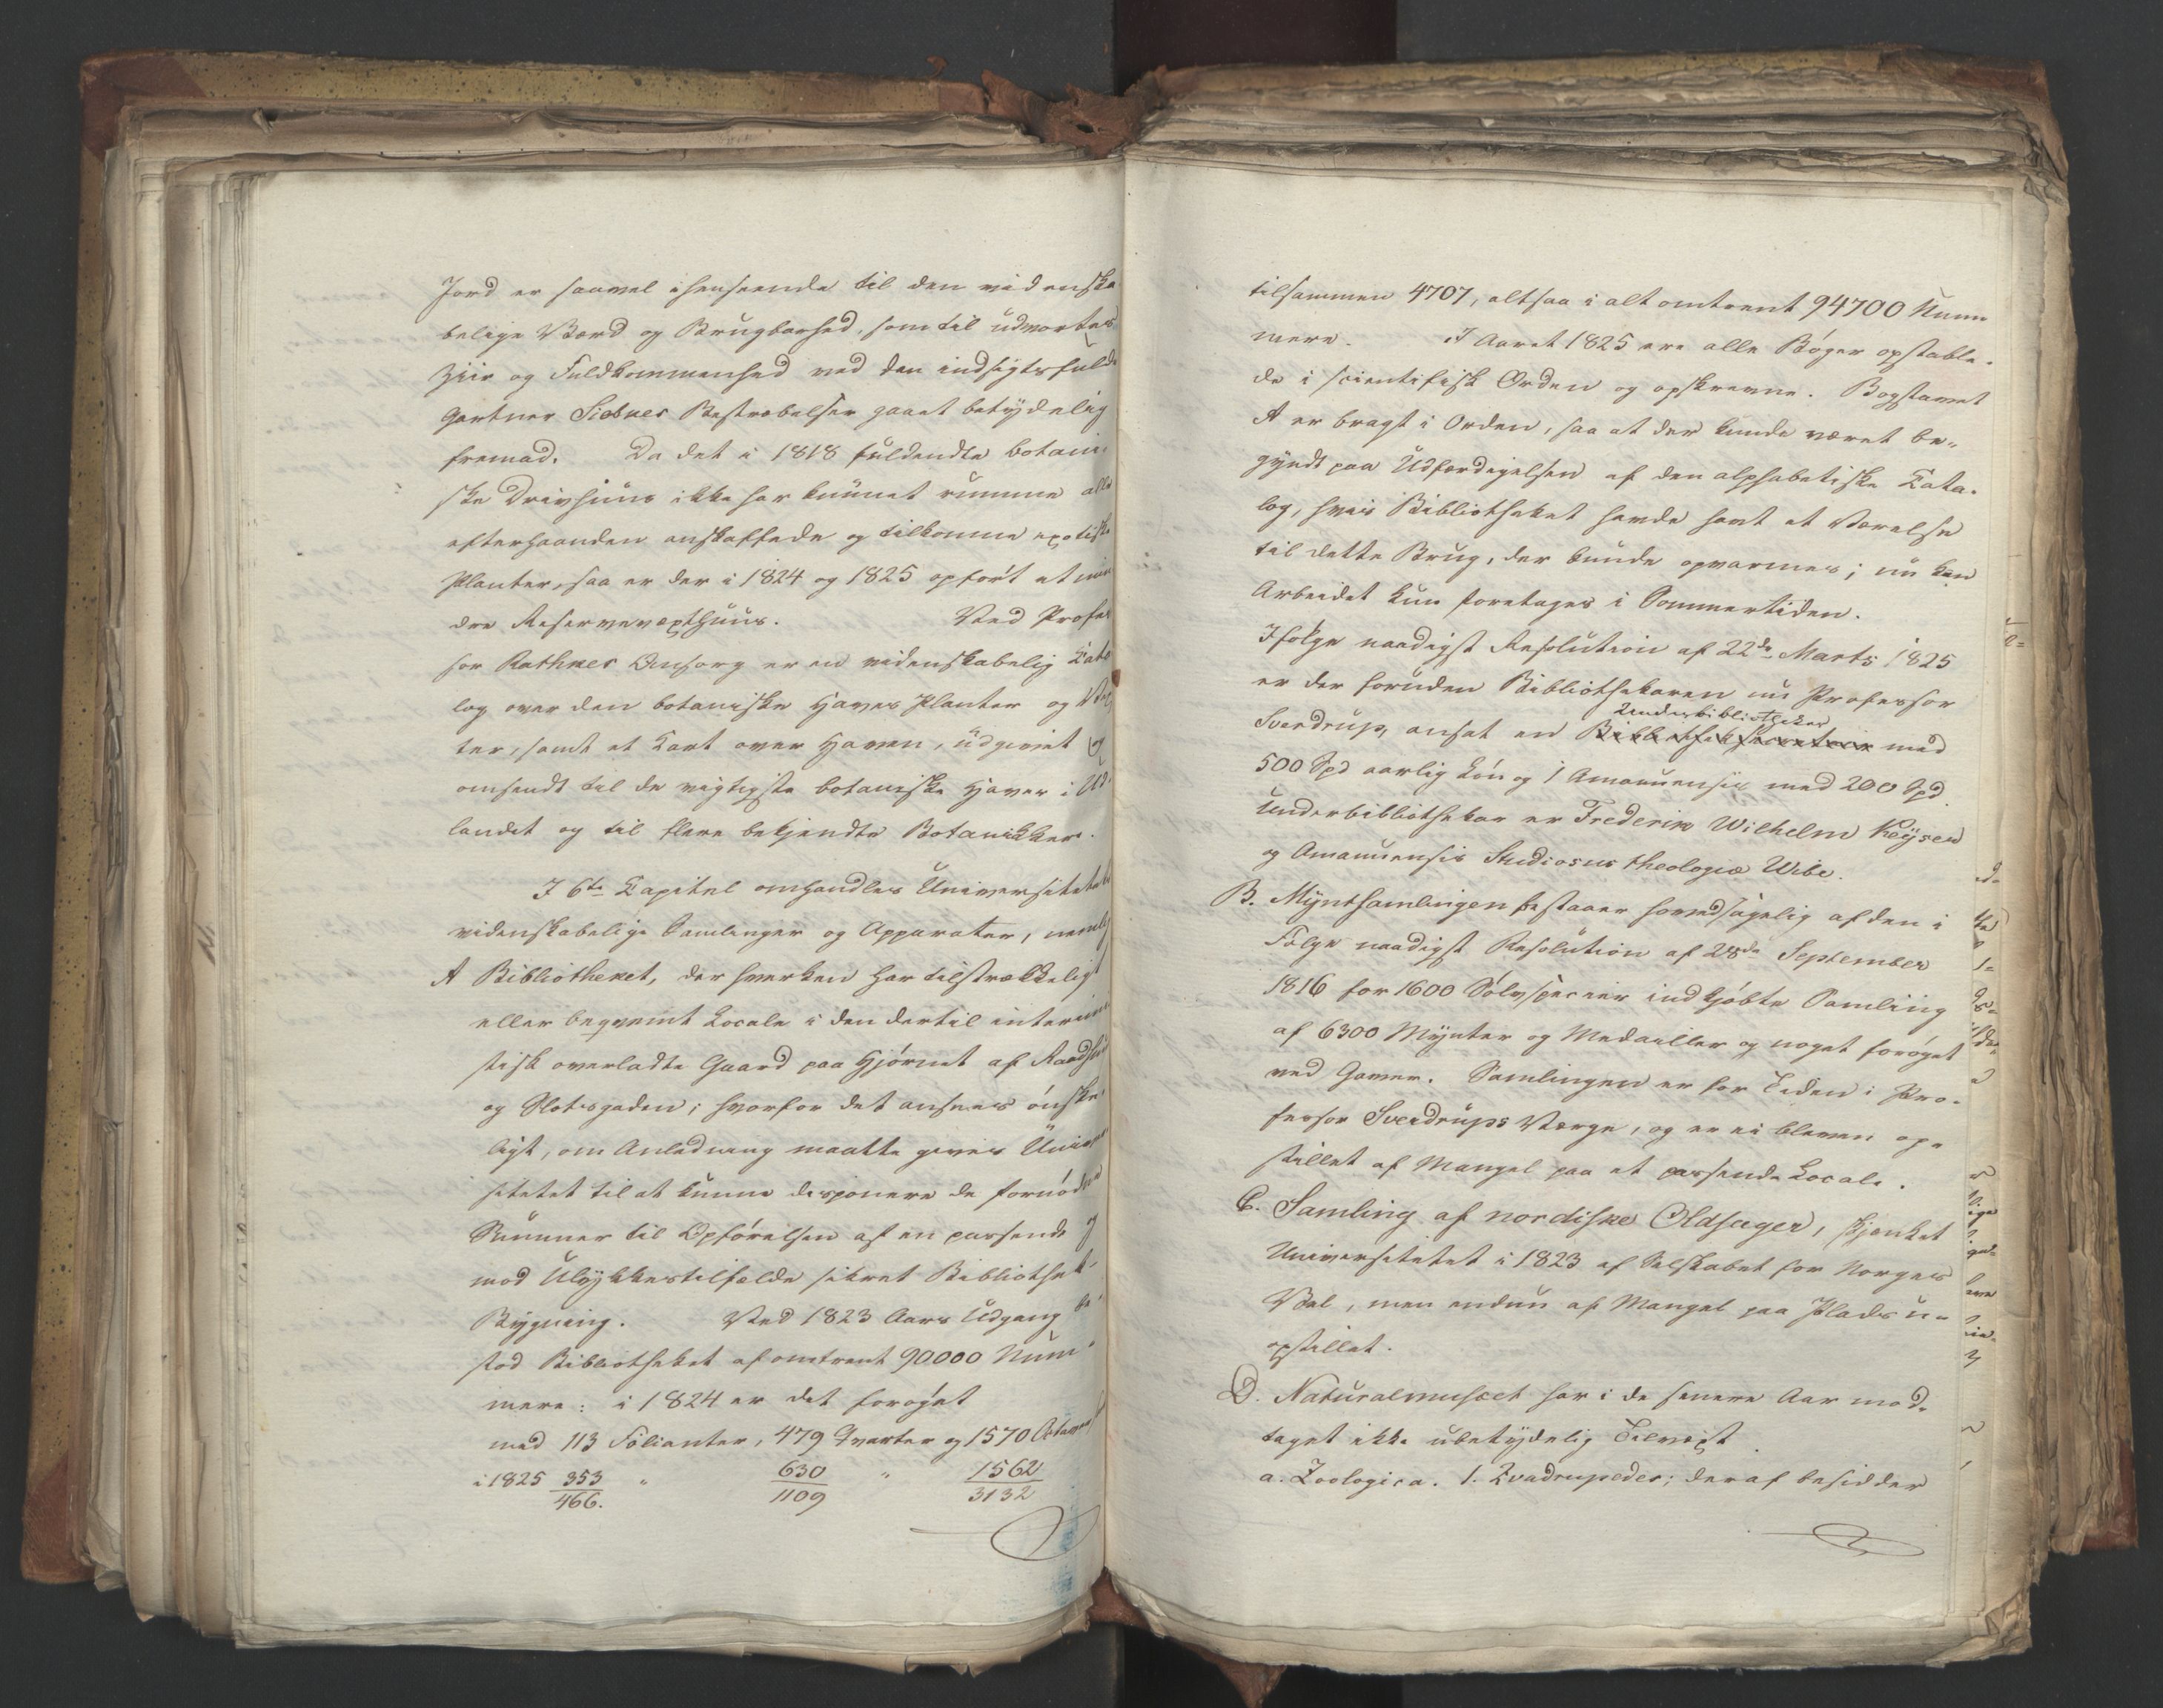 Jord er saavel ihenseende til den videnska
belige Værd og Brugbarhed, som til udvortes
Ziir og Fuldkommenhed ved den indsigtsfulde
Gartner Siebkes Bestræbelser gaaet betydelig
fremad. Da det i 1818 fuldendte botani
ske Driv­huus ikke har kunnet rumme alle
efterhaanden anskaffede og tilkomne exotiske
Planter, saa er der i 1824 og 1825 opført et min
dre Reservevexthuus. Ved Profes
sor Rathkes Omsorg er en videnskabelig Cata
log over den botaniske Haves Planter og Vex
ter, samt et Kart over Haven, udgivet og
omsendt til de vigtigste botaniske Haver i Ud-
landet og til flere bekjendte Botanikkere.
I 6te Capitel omhandles Universitetets
videnskabelige Samlinger og Apparater, nemlig
A Bibliotheket, der hverken har tilstrækkeligt
eller beqvemt Locale i den dertil interimi
stisk overladte Gaard paa Hjørnet af Raadhuus
og Slotsgaden; hvorfor det ansees ønske-
ligt, om Anledning maatte gives Univer
sitetet til at kunne disponere de fornødne
Summer til Opførelsen af en passende og
mod Ulykkestilfælde sikret Bibliothek-
Bygning. Ved 1823 Aars Udgang be-
stod Bibliotheket af omtrent 90000 Num-
mere: i 1824 er det forøget
med 113 Folianter, 479 Qvarter og 1570 Octaver
i 1825 353 " 630 " 1562
466. 1109 3132
tilsammen 4707, altsaa i alt omtrent 94700 Num
mere. I Aaret 1825 ere alle Bøger opstable-
de i scientifisk Orden og opskrevne. Bogstavet
A er bragt i Orden, saa at der kunde været be-
gyndt paa Udfærdigelsen af den alphabetiske Cata-
log, hvis Bibliotheket havde havt et Værelse
til dette Brug, der kunde opvarmes; nu kan
Arbeidet kun foretages i Sommertiden.
Ifølge naadigst Resolution af 22de Marts 1825
er der foruden Bibliothekaren nu Professor
Underbibliotheker
Sverdrup, ansat en Bibliotheksecretair med
500 Spd aarlig Løn og 1 Amanuensis med 200 Spd.
Underbibliothekar er Frederik Wilhelm Keysen
og Amanuensis Studiosus theologiæ Wibe.
B. Myntsamlingen bestaaer hovedsagelig af den i
Følge naadigst Resolution af 28de September
1816 for 1600 Sølvspecier indkjøbte Samling
af 6300 Mynter og Medailler og noget forøget
ved Gaver. Samlingen er for Tiden i Pro-
fessor Sverdrups Værge, og er ei bleven op-
stillet af Mangel paa et passende Locale.
C. Samling af nordiske Oldsager, skjenket
Universitetet i 1823 af Selskabet for Norges
Vel, men endnu af Mangel paa Plads u-
opstillet.
D. Naturalmusæet har i de senere Aar mod-
taget ikke ubetydelig Tilvext.
a. Zoologica. 1. Qvadrupeder; deraf besidder